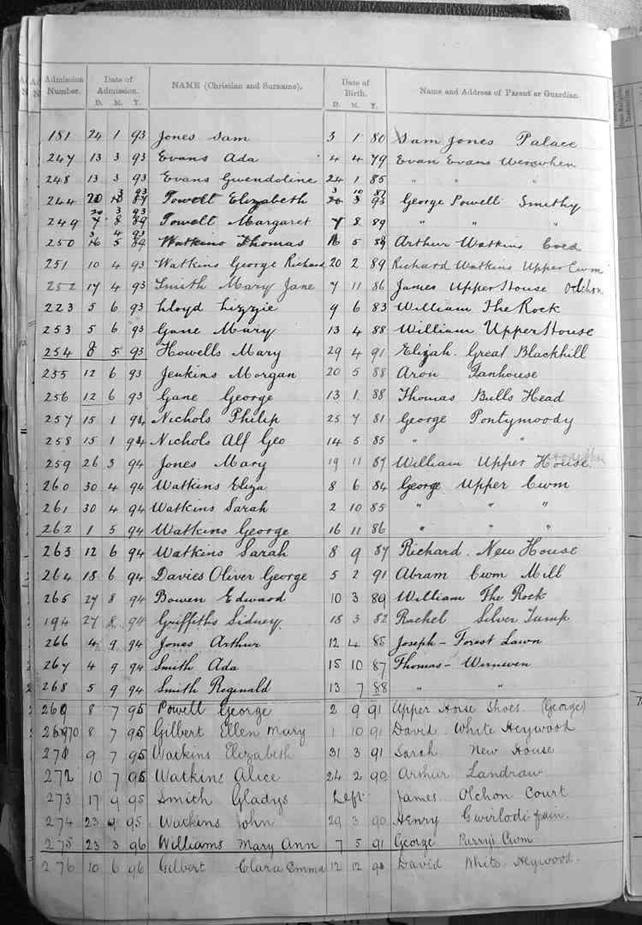 Admission Number. Date of Admission. NAME (Christian and Surname). Date of Birth. Name and Address of Parent or Guardian.
D. M. Y. D. M. Y.
181 24 1 93 Jones Sam 3 1 80 Sam Jones Palace
247 13 3 93 Evans Ada 4 4 79 Evan Evans
248 13 3 93 Evans Gwendoline 24 1 85 " "
244 20 3 93 Powell Elizabeth 3 10 87 George Powell Smithy
249 20 3 93 Powell Margaret 7 8 89 " "
250 3 4 93 Watkins Thomas 16 5 89 Arthur Watkins Coed
251 10 4 93 Watkins George Richard 20 2 89 Richard Watkins Upper Cwm
252 17 4 93 Smith Mary Jane 7 11 86 James Upper House Olchon
223 5 6 93 Lloyd Lizzie 9 6 83 William The Rock
253 5 6 93 Gane Mary 13 4 88 William Upper House
254 8 5 93 Howells Mary 29 4 91 Elizah. Great Blackhill
255 12 6 93 Jenkins Morgan 20 5 88 Aron Panhouse
256 12 6 93 Gane George 13 1 88 Thomas Bulls Head
257 15 1 94 Nichols Philip 25 7 81 George Pontymoody
258 15 1 94 Nichols Alf Geo 14 5 85 " "
259 26 3 94 Jones Mary 19 11 87 William Upper House
260 30 4 94 Watkins Eliza 8 6 84 George Upper Cwm
261 30 4 94 Watkins Sarah 2 10 85 " " "
262 1 5 94 Watkins George 16 11 86 " " "
263 12 6 94 Watkins Sarah 8 9 87 Richard. New House
264 18 6 94 Davies Oliver George 5 2 91 Abram Cwm Mill
265 27 8 94 Bowen Edward 10 3 89 William The Rock
194 27 8 94 Griffiths Sidney 18 3 82 Rachel Silver Tump
266 4 9 94 Jones Arthur 12 4 85 Joseph - Forest Lawn
267 4 9 94 Smith Ada 15 10 87 Thomas - Wernwen
268 5 9 94 Smith Reginald 13 7 88 " "
269 8 7 95 Powell George 2 9 91 Upper Horse Shoes (George)
270 8 7 95 Gilbert Ellen Mary 1 10 91 David White Heywood
271 9 7 95 Watkins Elizabeth 31 3 91 Sarah New House
272 10 7 95 Watkins Alice 24 2 90 Arthur Landraw
273 17 9 95 Smith Gladys Left James Olchon Court
274 23 9 95 Watkins John 29 3 90 Henry
275 23 3 96 Williams Mary Ann 7 5 91 George Parrys Cwm
276 10 6 96 Gilbert Clara Emma 12 12 David White Heywood